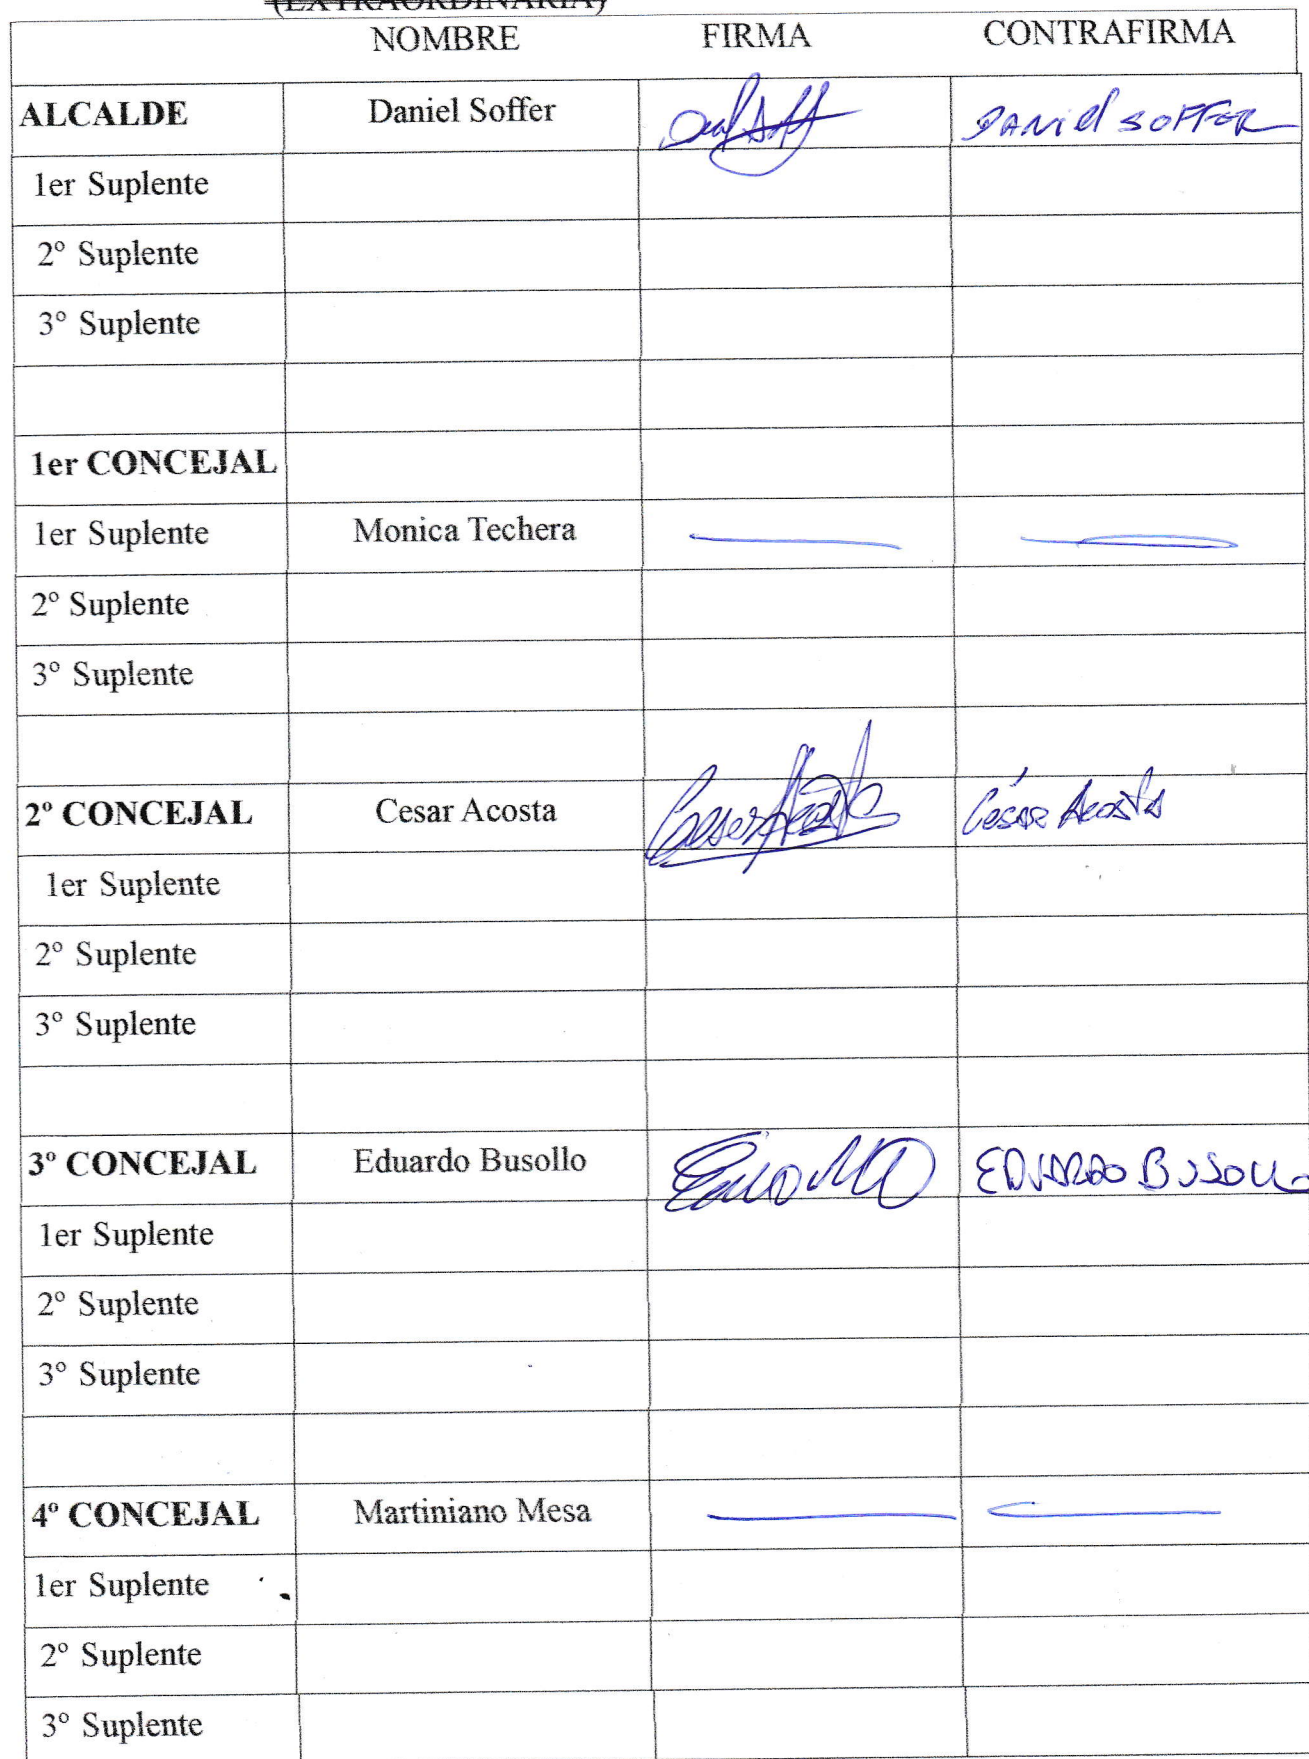 (EXTRAORDINARIA)
NOMBRE FIRMA CONTRAFIRMA
ALCALDE Daniel Soffer DANiel SOFFER
1er Suplente
2º Suplente
3º Suplente
1er CONCEJAL
1er Suplente Monica Techera
2º Suplente
3º Suplente
2º CONCEJAL Cesar Acosta Cesar Acosta César Acosta
1er Suplente
2º Suplente
3º Suplente
3º CONCEJAL Eduardo Busollo EDUARDO BUSOLLO
1er Suplente
2º Suplente
3º Suplente
4º CONCEJAL Martiniano Mesa
1er Suplente
2º Suplente
3º Suplente